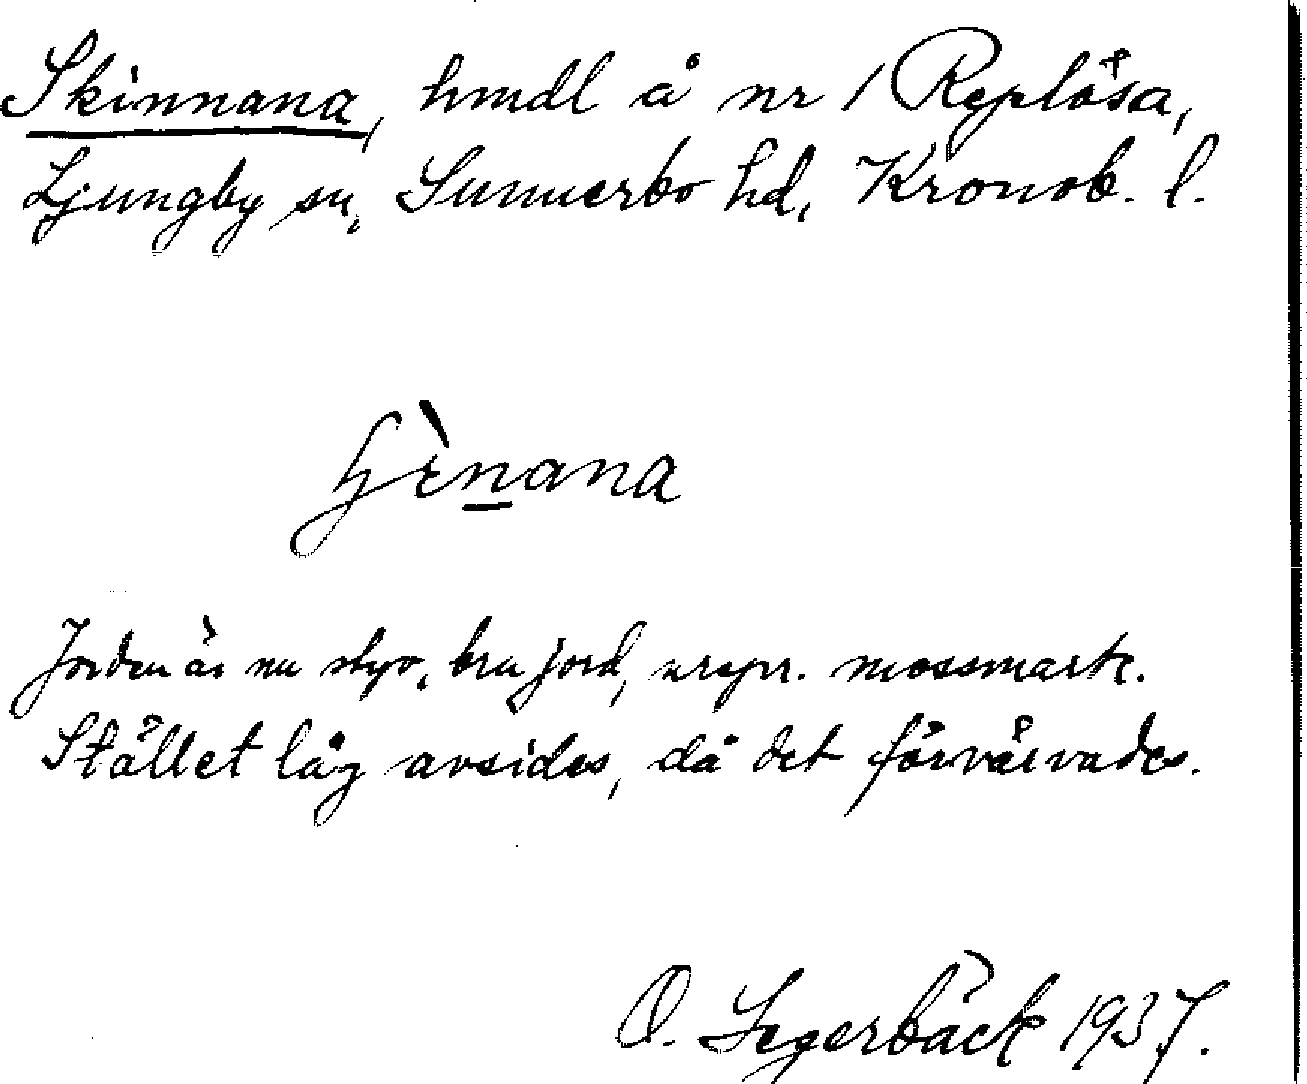 Skinnana, hmdl å nr 1 Replösa,
Ljungby sn, Sunnerbo hd, Kronob. l.
ɧɛ̀nana
Jorden är nu styv, bra jord, urspr. mossmark.
Stället låg avsides, då det förvärvades.
O. Segerbäck 1937.